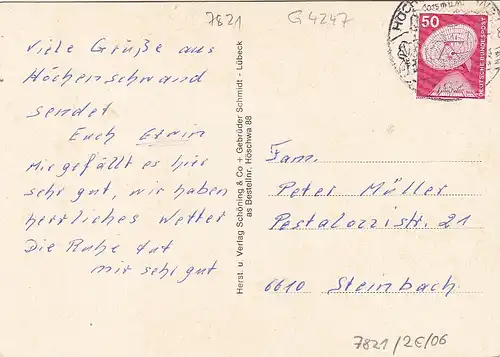 7821
G 4247
HÖCH
50
DEUTSCHE BUNDESPOST
Viele Grüße aus
Höchenschwand
sendet
Euch Erwin
Mir gefällt es hier
sehr gut, wir haben
herrliches Wetter
Die Ruhe tut
mir sehr gut
Herst. u. Verlag Schöning & Co + Gebrüder Schmidt - Lübeck
as Bestellnr. Höschwa 88
Fam.
Peter Müller
Pestalozzistr. 21
6610 Steinbach
7821/2€/06